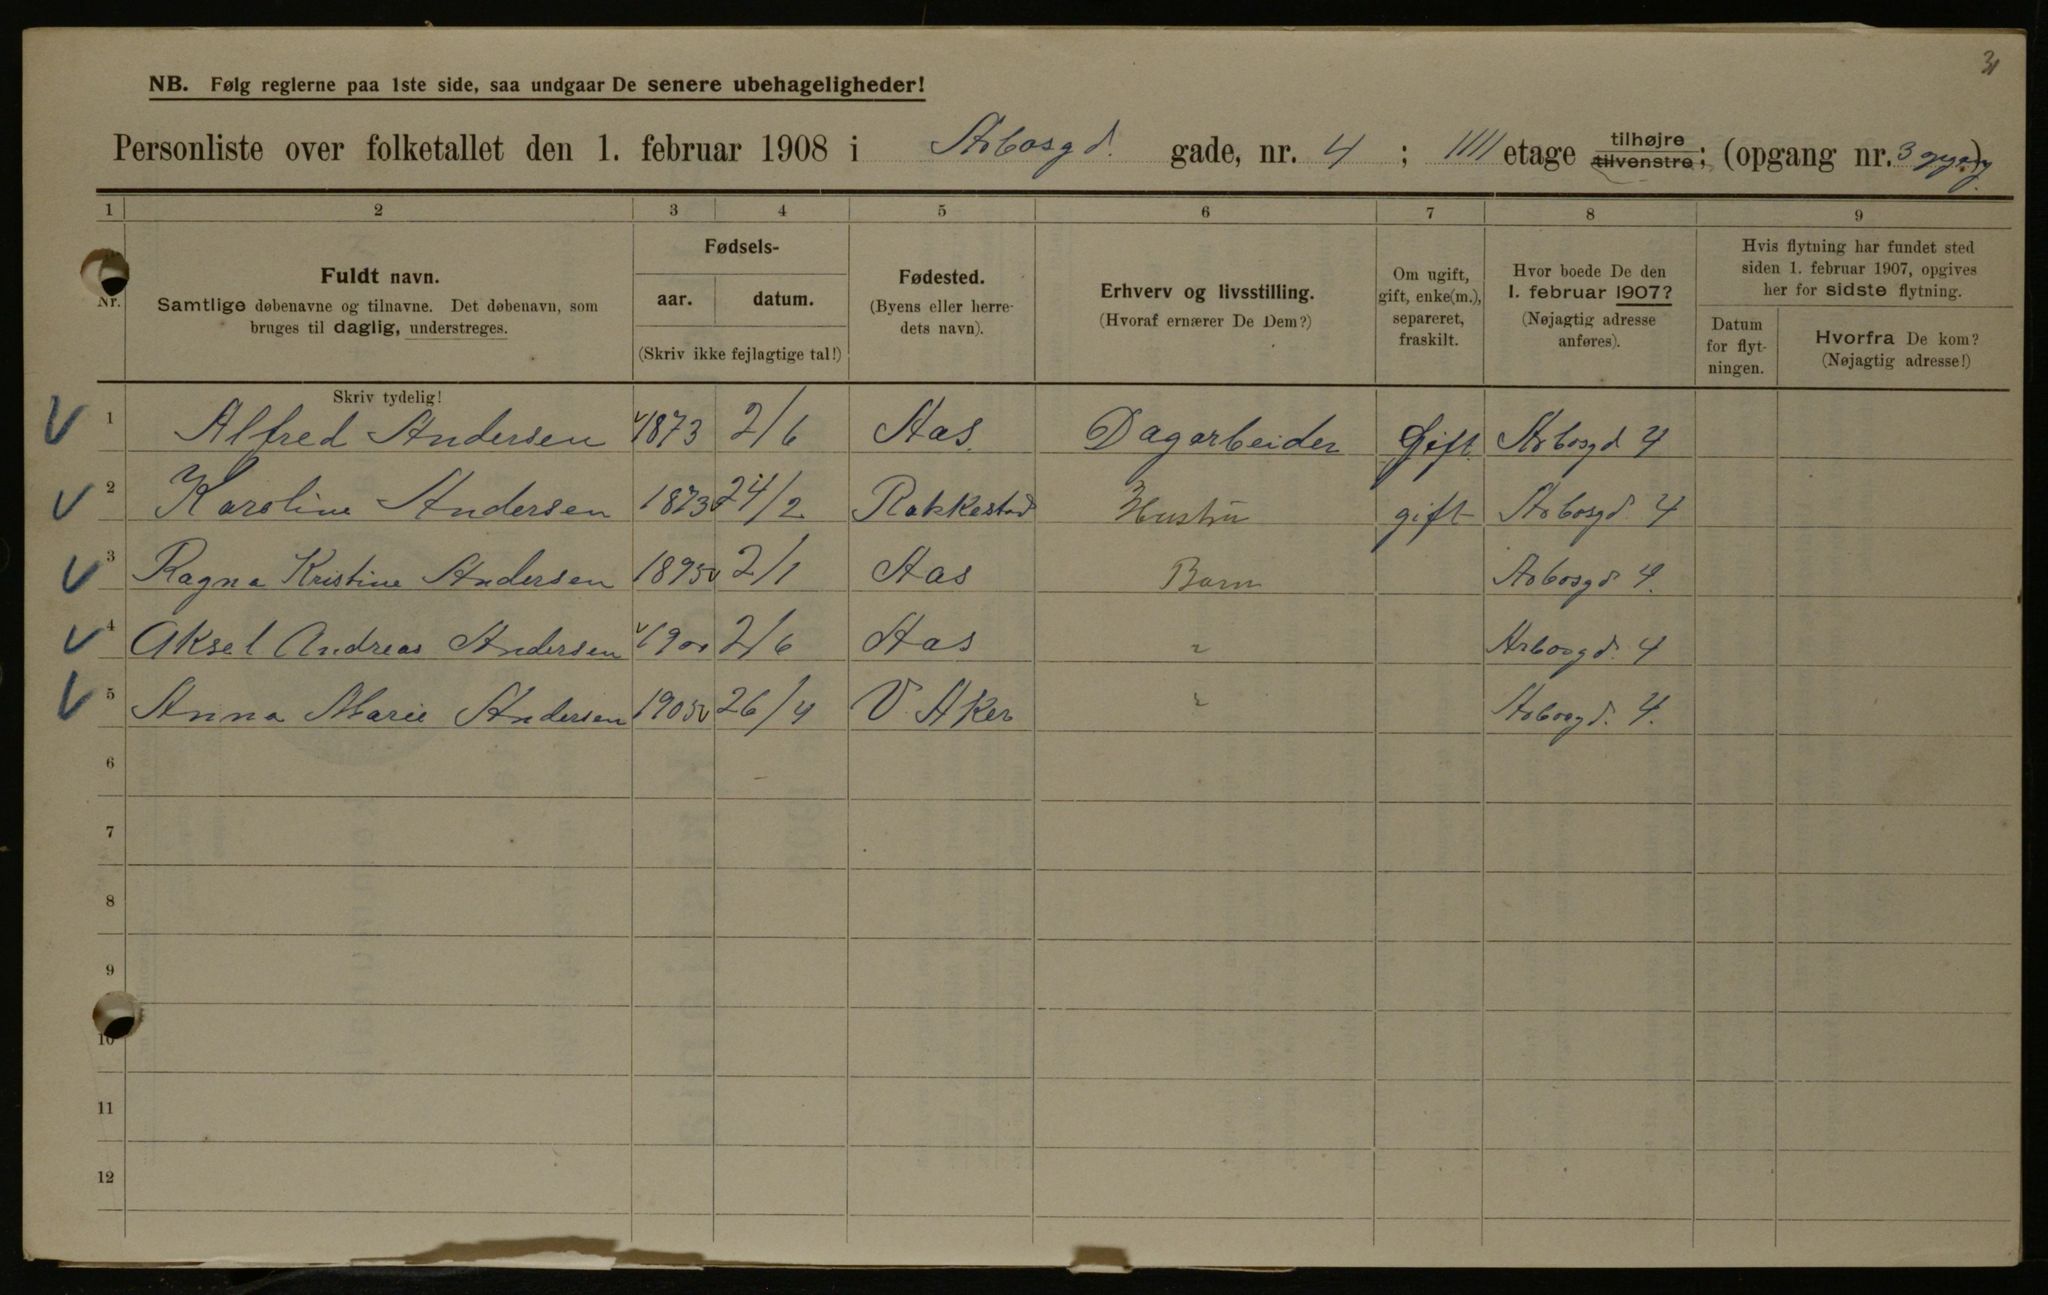 31
NB. Følg reglerne paa 1ste side, saa undgaar De senere ubehageligheder!
Personliste over folketallet den 1. februar 1908 i Arbosgd. gade, nr. 4 ; IIII etage tilhøjre tilvenstre; (opgang nr. 3 opgang).
1 2 3 4 5 6 7 8 9
Nr.
Fuldt navn.
Samtlige døbenavne og tilnavne. Det døbenavn, som
bruges til daglig, understreges.
Fødsels-
aar. datum.
(Skriv ikke fejlagtige tal!)
Fødested.
(Byens eller herre-
dets navn).
Erhverv og livsstilling.
(Hvoraf ernærer De Dem?)
Om ugift,
gift, enke(m.),
separeret,
fraskilt.
Hvor boede De den
1. februar 1907?
(Nøjagtig adresse
anføres).
Hvis flytning har fundet sted
siden 1. februar 1907, opgives
her for sidste flytning.
Datum
for flyt-
ningen.
Hvorfra De kom?
(Nøjagtig adresse!)
Skriv tydelig!
1 Alfred Andersen 1873 2/6 Aas. Dagarbeider Gift. Arbosgd 4
2 Karoline Andersen 1873 24/2 Rakkestad Hustru gift Arbosgd. 4
3 Ragna Kristine Andersen 1895 2/1 Aas Barn Arbosgd. 4.
4 Aksel Andreas Andersen 1900 2/6 Aas " Arbosgd. 4
5 Anna Marie Andersen 1905 26/4 V. Aker " Arbosgd. 4.
6
7
8
9
10
11
12